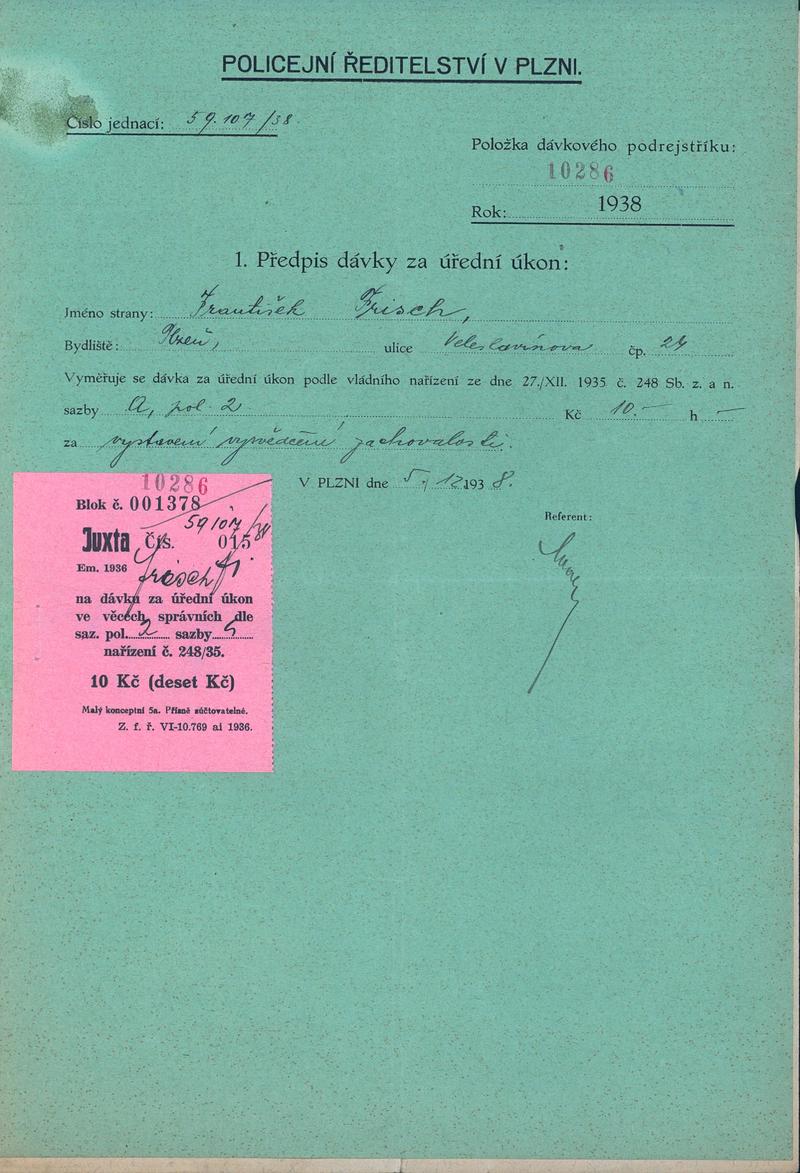 POLICEJNÍ ŘEDITELSTVÍ V PLZNI.
Číslo jednací: 59.107/38
Položka dávkového podrejstříku:
10286
Rok: 1938
1. Předpis dávky za úřední úkon:
Jméno strany: František Frisch,
Bydliště: Plzeň, ulice Veleslavínova čp. 24
Vyměřuje se dávka za úřední úkon podle vládního nařízení ze dne 27./XII. 1935 č. 248 Sb. z. a n.
sazby A, pol. 2 Kč 10.— h —
za vystavení vysvědčení zachovalosti.
V PLZNI dne 5./12.1938.
Referent:
10286
Blok č. 001378
59107/38
Juxta Čís. 015
Em. 1936
Frisch Fr.
na dávku za úřední úkon
ve věcech správních dle
saz. pol. 2 sazby
nařízení č. 248/35.
10 Kč (deset Kč)
Malý konceptní 5a. Přísně zúčtovatelné.
Z. f. ř. VI-10.769 ai 1936.